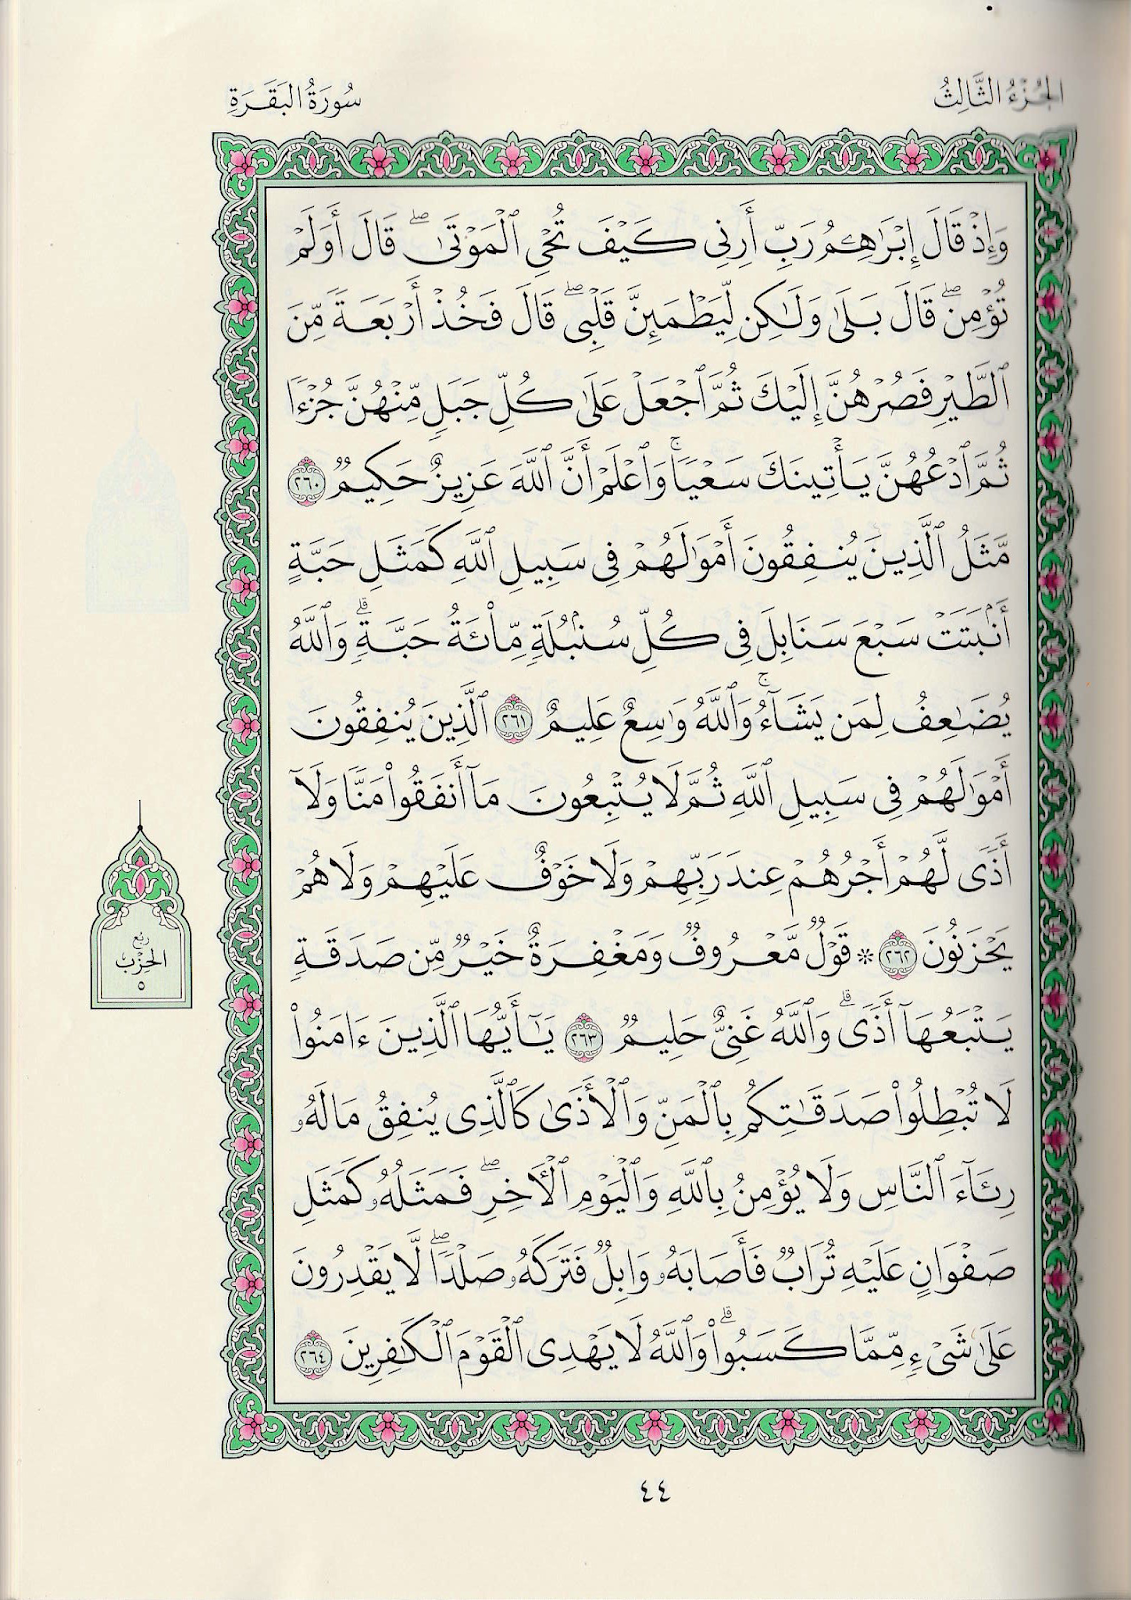 الجُزْءُ الثَّالِثُ
سُورَةُ البَقَرَةِ
وَإِذۡ قَالَ إِبۡرَٰهِـۧمُ رَبِّ أَرِنِي كَيۡفَ تُحۡيِ ٱلۡمَوۡتَىٰۖ قَالَ أَوَلَمۡ
تُؤۡمِنۖ قَالَ بَلَىٰ وَلَٰكِن لِّيَطۡمَئِنَّ قَلۡبِيۖ قَالَ فَخُذۡ أَرۡبَعَةٗ مِّنَ
ٱلطَّيۡرِ فَصُرۡهُنَّ إِلَيۡكَ ثُمَّ ٱجۡعَلۡ عَلَىٰ كُلِّ جَبَلٖ مِّنۡهُنَّ جُزۡءٗا
ثُمَّ ٱدۡعُهُنَّ يَأۡتِينَكَ سَعۡيٗاۚ وَٱعۡلَمۡ أَنَّ ٱللَّهَ عَزِيزٌ حَكِيمٞ ٢٦٠
مَّثَلُ ٱلَّذِينَ يُنفِقُونَ أَمۡوَٰلَهُمۡ فِي سَبِيلِ ٱللَّهِ كَمَثَلِ حَبَّةٍ
أَنۢبَتَتۡ سَبۡعَ سَنَابِلَ فِي كُلِّ سُنۢبُلَةٖ مِّاْئَةُ حَبَّةٖۗ وَٱللَّهُ
يُضَٰعِفُ لِمَن يَشَآءُۚ وَٱللَّهُ وَٰسِعٌ عَلِيمٌ ٢٦١ ٱلَّذِينَ يُنفِقُونَ
أَمۡوَٰلَهُمۡ فِي سَبِيلِ ٱللَّهِ ثُمَّ لَا يُتۡبِعُونَ مَآ أَنفَقُواْ مَنّٗا وَلَآ
أَذٗى لَّهُمۡ أَجۡرُهُمۡ عِندَ رَبِّهِمۡ وَلَا خَوۡفٌ عَلَيۡهِمۡ وَلَا هُمۡ
يَحۡزَنُونَ ٢٦٢ ۞ قَوۡلٞ مَّعۡرُوفٞ وَمَغۡفِرَةٌ خَيۡرٞ مِّن صَدَقَةٖ
يَتۡبَعُهَآ أَذٗىۗ وَٱللَّهُ غَنِيٌّ حَلِيمٞ ٢٦٣ يَٰٓأَيُّهَا ٱلَّذِينَ ءَامَنُواْ
لَا تُبۡطِلُواْ صَدَقَٰتِكُم بِٱلۡمَنِّ وَٱلۡأَذَىٰ كَٱلَّذِي يُنفِقُ مَالَهُۥ
رِئَآءَ ٱلنَّاسِ وَلَا يُؤۡمِنُ بِٱللَّهِ وَٱلۡيَوۡمِ ٱلۡأٓخِرِۖ فَمَثَلُهُۥ كَمَثَلِ
صَفۡوَانٍ عَلَيۡهِ تُرَابٞ فَأَصَابَهُۥ وَابِلٞ فَتَرَكَهُۥ صَلۡدٗاۖ لَّا يَقۡدِرُونَ
عَلَىٰ شَيۡءٖ مِّمَّا كَسَبُواْۗ وَٱللَّهُ لَا يَهۡدِي ٱلۡقَوۡمَ ٱلۡكَٰفِرِينَ ٢٦٤
رُبع
الحِزْب
٥
٤٤